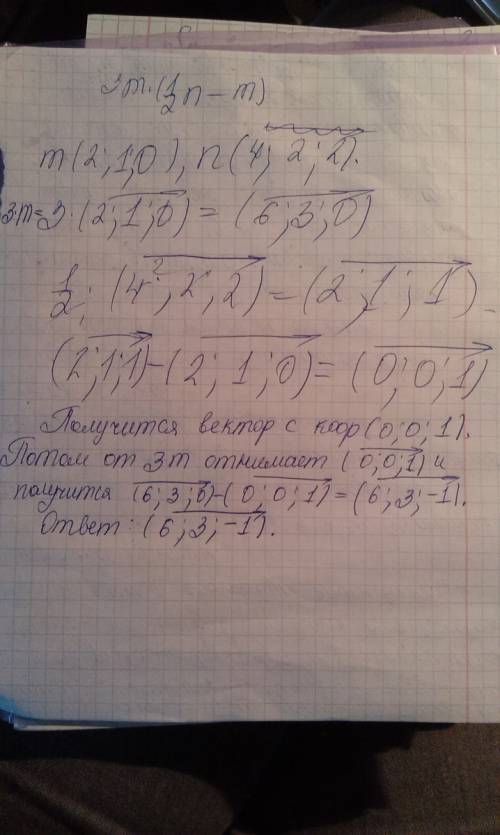 3m·(1/2 n - m)
m(2;1;0), n(4; 2; 2).
3·m=3·(2;1;0) = (6;3;0)
1/2; (4²;2;2)=(2;1;1)
(2;1;1)-(2;1;0)=(0;0;1)
Получится вектор с коор(0;0;1).
Потом от 3m отнимает (0;0;1) и
получится (6;3;0)-(0;0;1)=(6;3;-1).
Ответ: (6;3;-1).